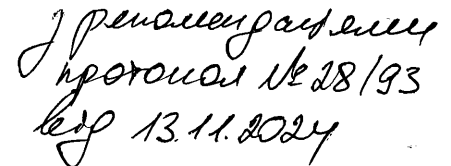 з рекомендаціями
протокол № 28/93
від 13.11.2024